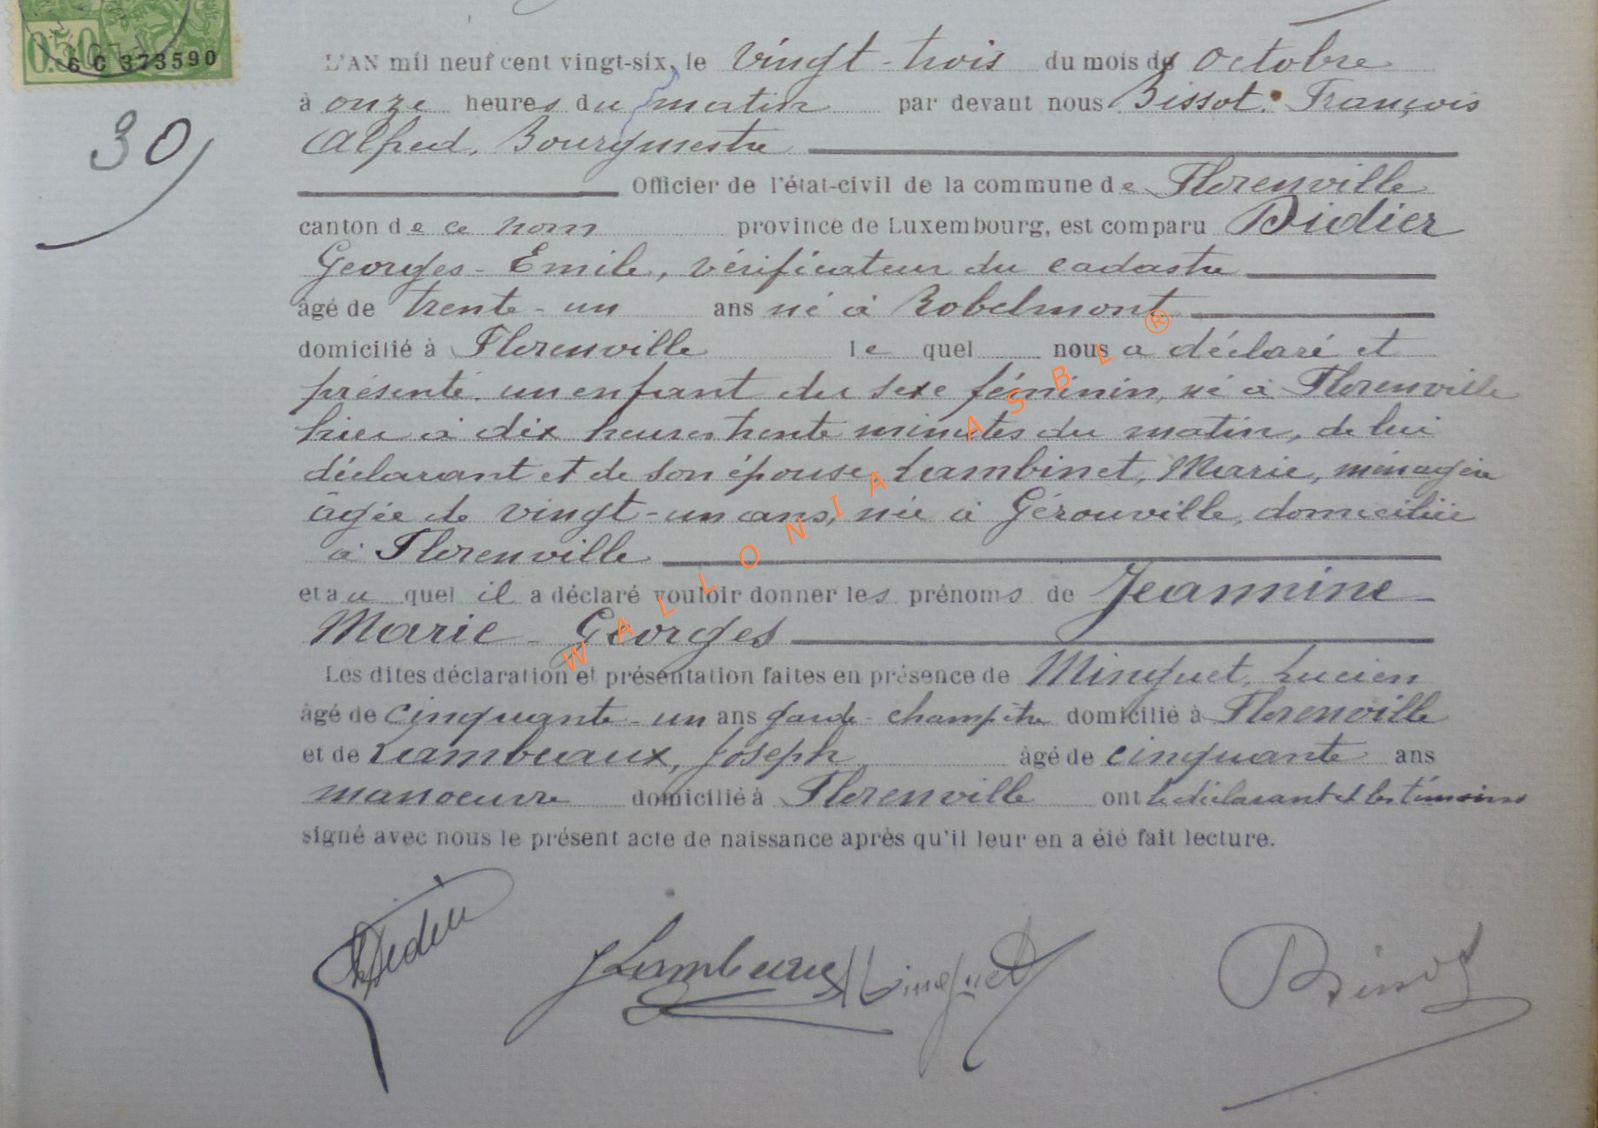 0.50
6 C 373590
30
L'AN mil neuf cent vingt-six, le vingt-trois du mois de octobre
à onze heures du matin par devant nous Bissot. François
Alfred, Bourgmestre
Officier de l'état-civil de la commune de Florenville
canton de ce nom province de Luxembourg, est comparu Didier
Georges-Emile, vérificateur du cadastre
âgé de trente-un ans né à Robelmont
domicilié à Florenville le quel nous a déclaré et
présenté un enfant du sexe féminin, né à Florenville
hier à dix heures trente minutes du matin, de lui
déclarant et de son épouse Lambinet, Marie, ménagère
âgée de vingt-un ans, née à Gérouville, domiciliée
à Florenville
et au quel il a déclaré vouloir donner les prénoms de Jeannine
Marie-Georges
Les dites déclaration et présentation faites en présence de Minguet, Lucien
âgé de cinquante-un ans garde-champêtre domicilié à Florenville
et de Lambeaux, Joseph âgé de cinquante ans
manoeuvre domicilié à Florenville ont le déclarant et les témoins
signé avec nous le présent acte de naissance après qu'il leur en a été fait lecture.
Didier
J Lambeaux
L Minguet
Bissot
WALLONIA ASBL ®